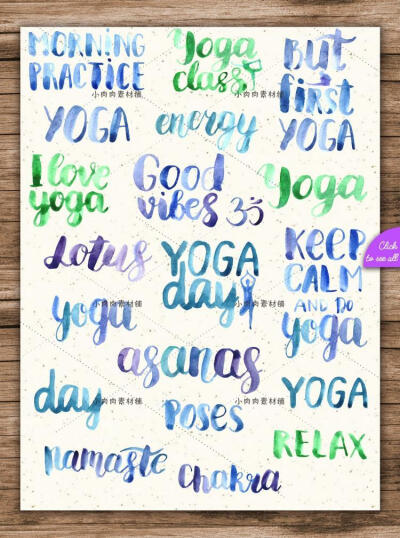 MORNING
PRACTICE
Yoga
class
But
first
YOGA
小肉肉素材铺
小肉肉素材铺
YOGA
energy
I love
yoga
Good
vibes ॐ
Yoga
Click
to see all
Lotus
YOGA
day
KEEP
CALM
AND DO
yoga
小肉肉素材铺
小肉肉素材铺
yoga
asanas
day
Poses
YOGA
小肉肉素材铺
小肉肉素材铺
RELAX
namaste
chakra